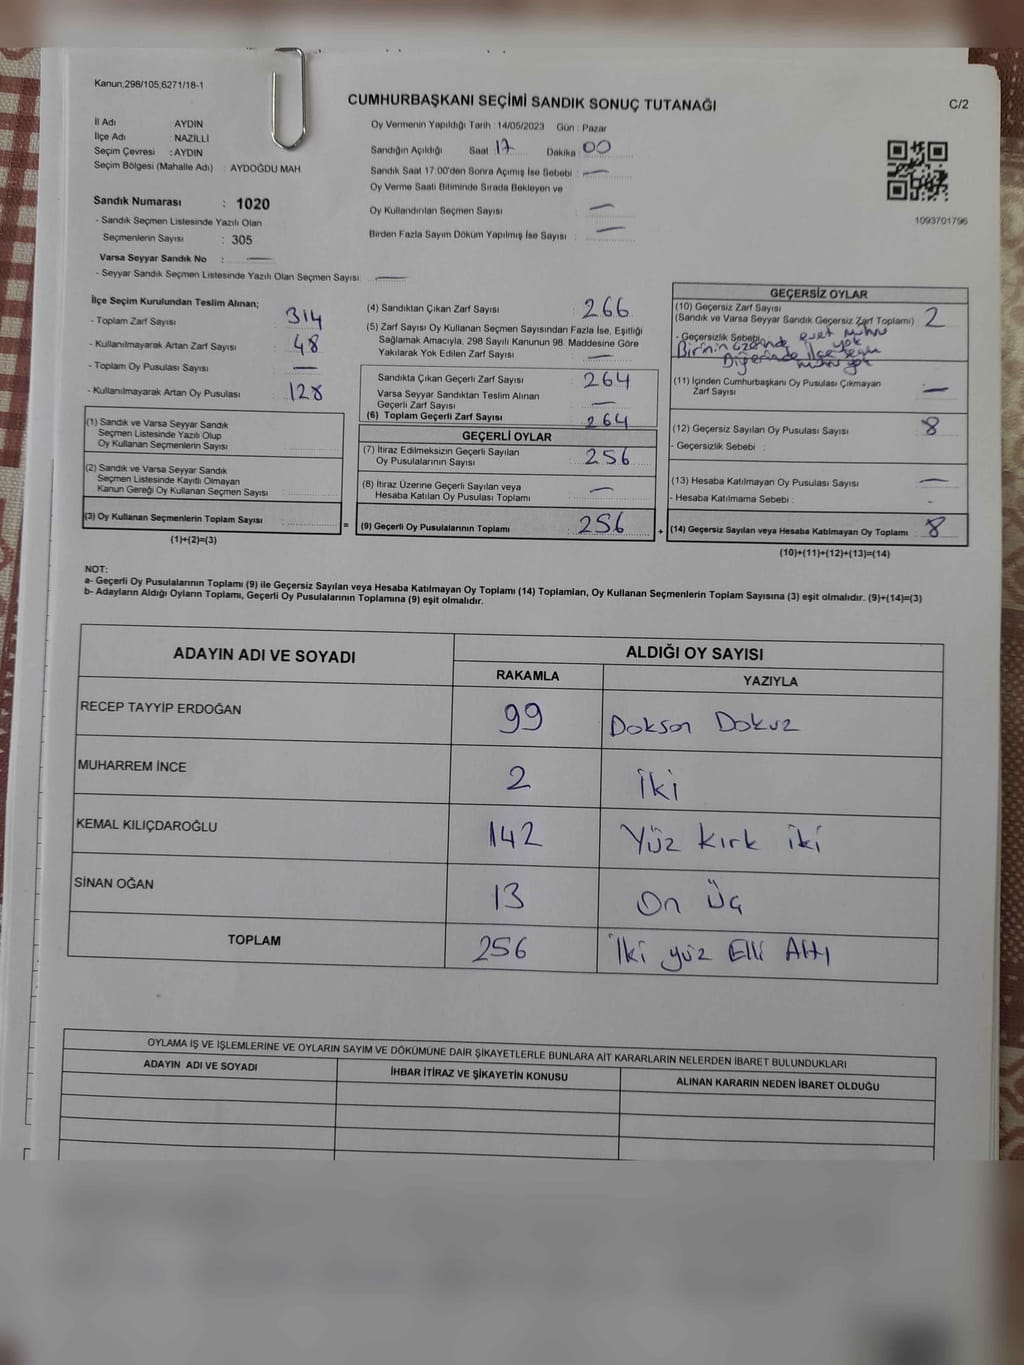 Kanun;298/105,6271/18-1
CUMHURBAŞKANI SEÇİMİ SANDIK SONUÇ TUTANAĞI
C/2
İl Adı : AYDIN
İlçe Adı : NAZİLLİ
Seçim Çevresi : AYDIN
Seçim Bölgesi (Mahalle Adı) : AYDOĞDU MAH
Sandık Numarası : 1020
- Sandık Seçmen Listesinde Yazılı Olan
Seçmenlerin Sayısı : 305
Varsa Seyyar Sandık No : —
- Seyyar Sandık Seçmen Listesinde Yazılı Olan Seçmen Sayısı : —
Oy Vermenin Yapıldığı Tarih : 14/05/2023 Gün : Pazar
Sandığın Açıldığı Saat 17 Dakika : 00
Sandık Saat 17.00'den Sonra Açımış İse Sebebi : —
Oy Verme Saati Bitiminde Sırada Bekleyen ve
Oy Kullandırılan Seçmen Sayısı : —
Birden Fazla Sayım Döküm Yapılmış İse Sayısı : —
1093701796
İlçe Seçim Kurulundan Teslim Alınan;
- Toplam Zarf Sayısı : 314
- Kullanılmayarak Artan Zarf Sayısı : 48
- Toplam Oy Pusulası Sayısı : —
- Kullanılmayarak Artan Oy Pusulası : 128
(1) Sandık ve Varsa Seyyar Sandık
Seçmen Listesinde Yazılı Olup
Oy Kullanan Seçmenlerin Sayısı :
(2) Sandık ve Varsa Seyyar Sandık
Seçmen Listesinde Kayıtlı Olmayan
Kanun Gereği Oy Kullanan Seçmen Sayısı :
(3) Oy Kullanan Seçmenlerin Toplam Sayısı : =
(1)+(2)=(3)
(4) Sandıktan Çıkan Zarf Sayısı : 266
(5) Zarf Sayısı Oy Kullanan Seçmen Sayısından Fazla İse, Eşitliği
Sağlamak Amacıyla, 298 Sayılı Kanunun 98. Maddesine Göre
Yakılarak Yok Edilen Zarf Sayısı : —
Sandıkta Çıkan Geçerli Zarf Sayısı : 264
Varsa Seyyar Sandıktan Teslim Alınan
Geçerli Zarf Sayısı : —
(6) Toplam Geçerli Zarf Sayısı : 264
GEÇERLİ OYLAR
(7) İtiraz Edilmeksizin Geçerli Sayılan
Oy Pusulalarının Sayısı : 256
(8) İtiraz Üzerine Geçerli Sayılan veya
Hesaba Katılan Oy Pusulası Toplamı : —
(9) Geçerli Oy Pusulalarının Toplamı : 256 +
GEÇERSİZ OYLAR
(10) Geçersiz Zarf Sayısı
(Sandık ve Varsa Seyyar Sandık Geçersiz Zarf Toplamı) : 2
- Geçersizlik Sebebi :
Birinin üzerinde evet mührü yok
Diğerinde ilçe seçim mührü yok
(11) İçinden Cumhurbaşkanı Oy Pusulası Çıkmayan
Zarf Sayısı : —
(12) Geçersiz Sayılan Oy Pusulası Sayısı : 8
- Geçersizlik Sebebi :
(13) Hesaba Katılmayan Oy Pusulası Sayısı : —
- Hesaba Katılmama Sebebi : -
(14) Geçersiz Sayılan veya Hesaba Katılmayan Oy Toplamı : 8
(10)+(11)+(12)+(13)=(14)
NOT:
a- Geçerli Oy Pusulalarının Toplamı (9) ile Geçersiz Sayılan veya Hesaba Katılmayan Oy Toplamı (14) Toplamları, Oy Kullanan Seçmenlerin Toplam Sayısına (3) eşit olmalıdır. (9)+(14)=(3)
b- Adayların Aldığı Oyların Toplamı, Geçerli Oy Pusulalarının Toplamına (9) eşit olmalıdır.
ADAYIN ADI VE SOYADI
ALDIĞI OY SAYISI
RAKAMLA YAZIYLA
RECEP TAYYİP ERDOĞAN 99 Doksan Dokuz
MUHARREM İNCE 2 iki
KEMAL KILIÇDAROĞLU 142 Yüz kırk iki
SİNAN OĞAN 13 On Üç
TOPLAM 256 İki yüz Elli Altı
OYLAMA İŞ VE İŞLEMLERİNE VE OYLARIN SAYIM VE DÖKÜMÜNE DAİR ŞİKAYETLERLE BUNLARA AİT KARARLARIN NELERDEN İBARET BULUNDUKLARI
ADAYIN ADI VE SOYADI İHBAR İTİRAZ VE ŞİKAYETİN KONUSU ALINAN KARARIN NEDEN İBARET OLDUĞU